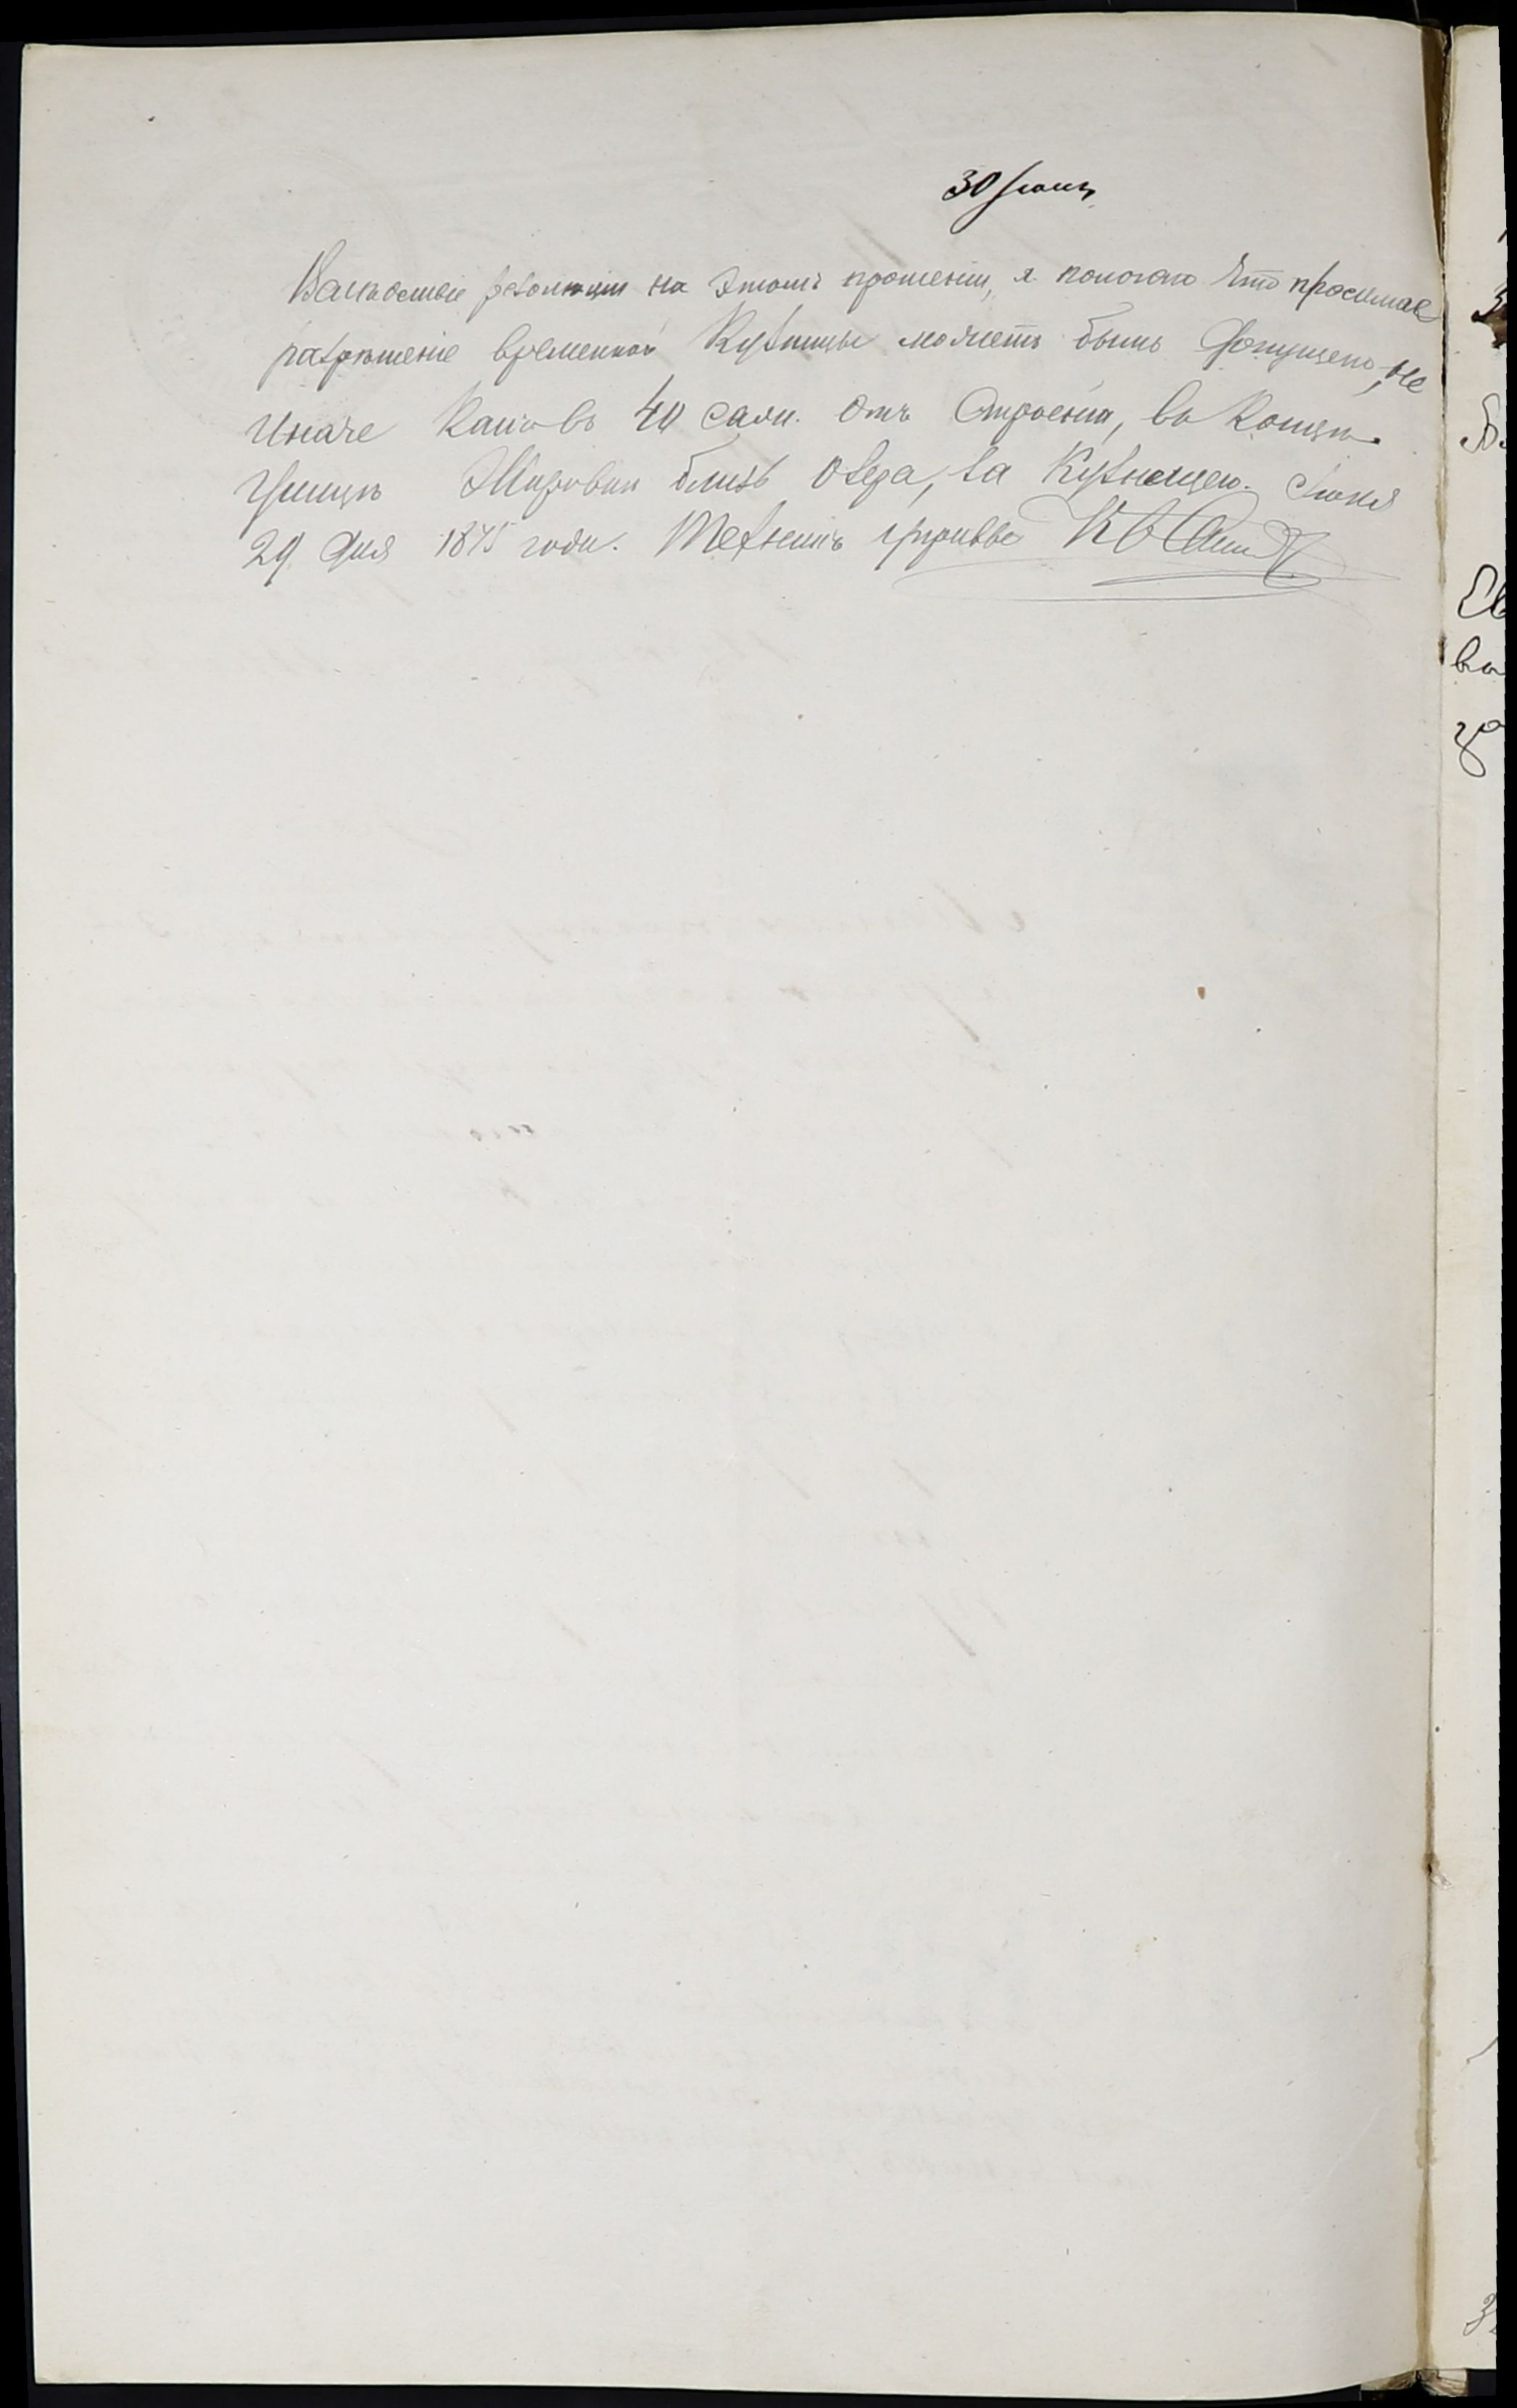 30 Іюня
Вслѣдствіе резолюціи на этомъ прошеніи, я полагаю что просимое
разрѣшеніе временной Кузницы можетъ быть допущено, не
иначе какъ въ 40 саж. отъ Строенія, въ Концѣ
Улицы близь озера, за Кузнецею. Іюня
29 дня 1875 года. Техникъ